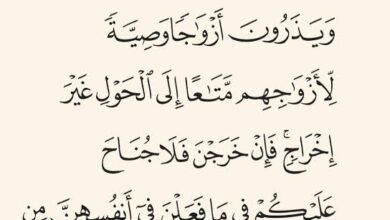 وَيَذَرُونَ أَزْوَٰجًا وَصِيَّةً
لِّأَزْوَٰجِهِم مَّتَٰعًا إِلَى ٱلْحَوْلِ غَيْرَ
إِخْرَاجٍۚ فَإِنْ خَرَجْنَ فَلَا جُنَاحَ
عَلَيْكُمْ فِى مَا فَعَلْنَ فِىٓ أَنفُسِهِنَّ مِن